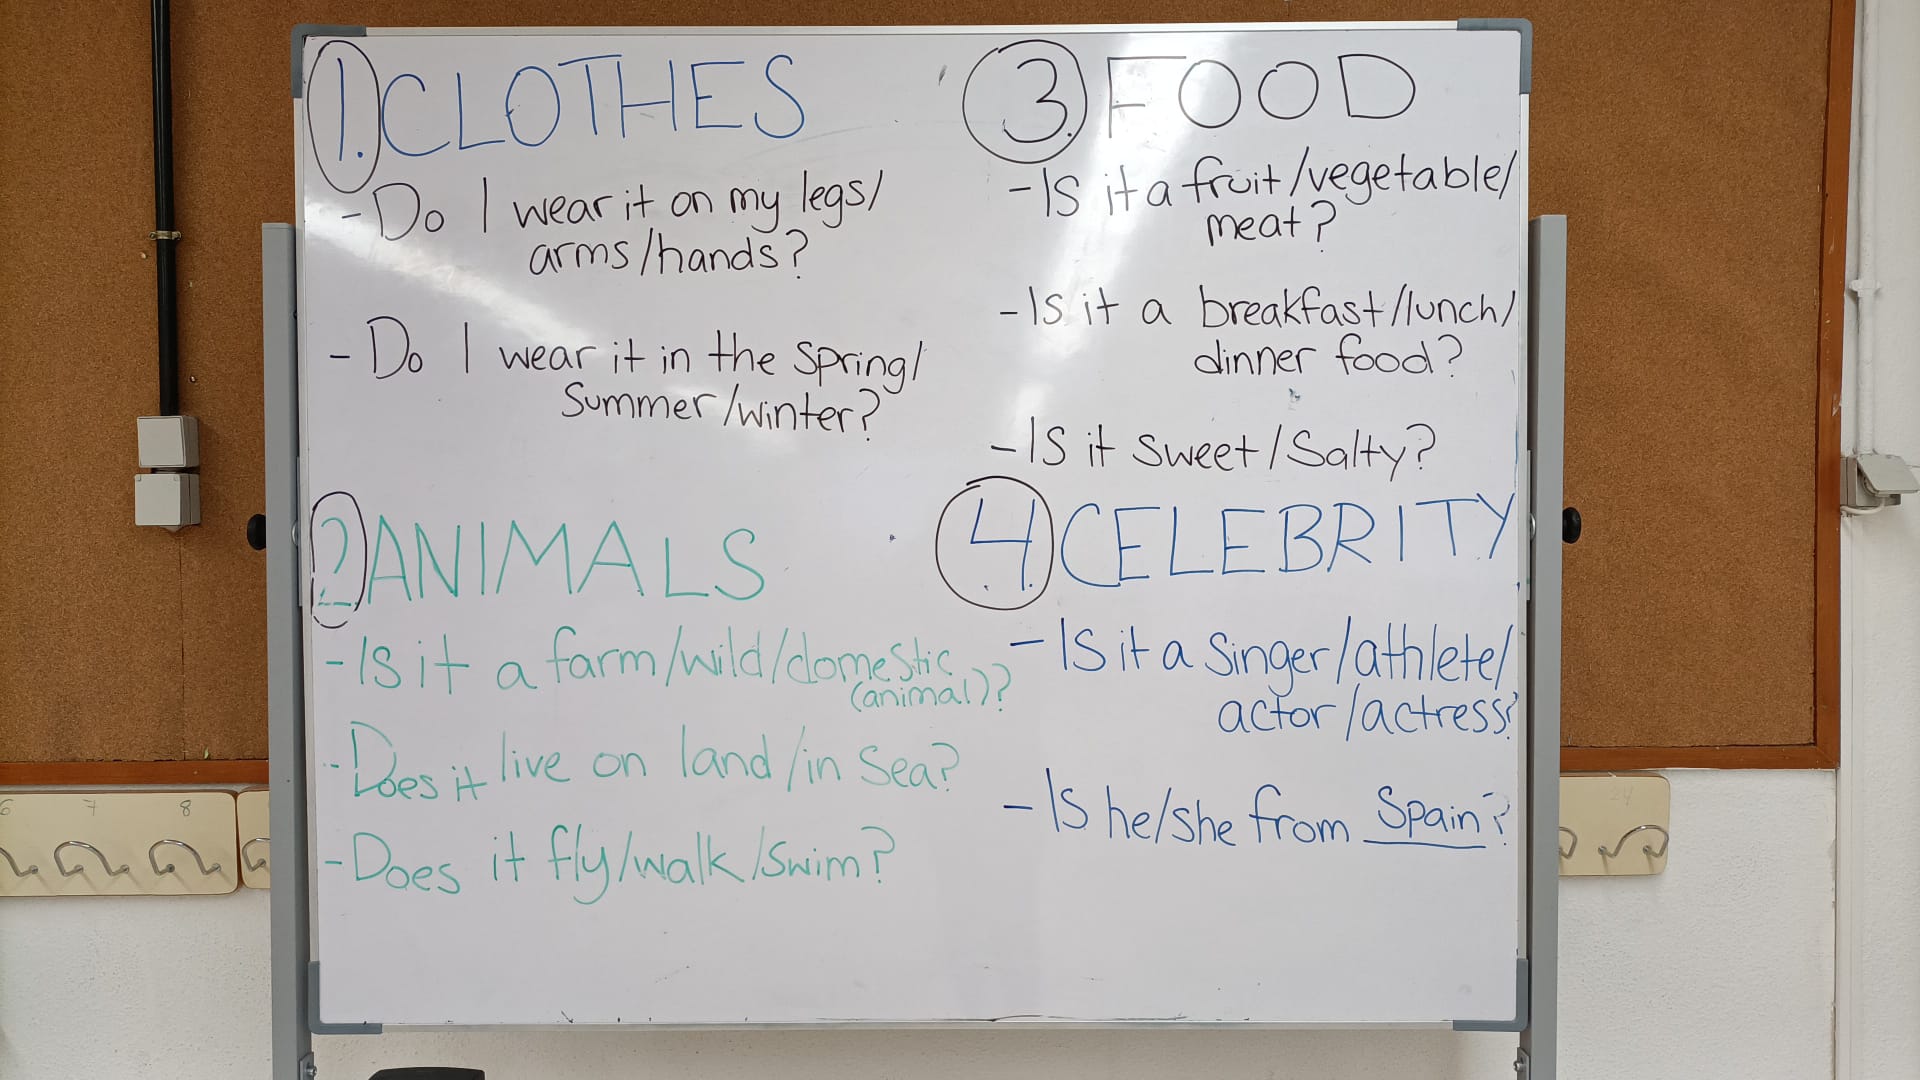 1. CLOTHES
- Do I wear it on my legs/
arms/hands?
- Do I wear it in the spring/
Summer/winter?
2 ANIMALS
- Is it a farm/wild/domestic
(animal)?
- Does it live on land/in Sea?
- Does it fly/walk/swim?
3. FOOD
- Is it a fruit/vegetable/
meat?
- Is it a breakfast/lunch/
dinner food?
- Is it sweet/Salty?
4. CELEBRITY
- Is it a singer/athlete/
actor/actress?
- Is he/she from Spain?
6 7 8
24